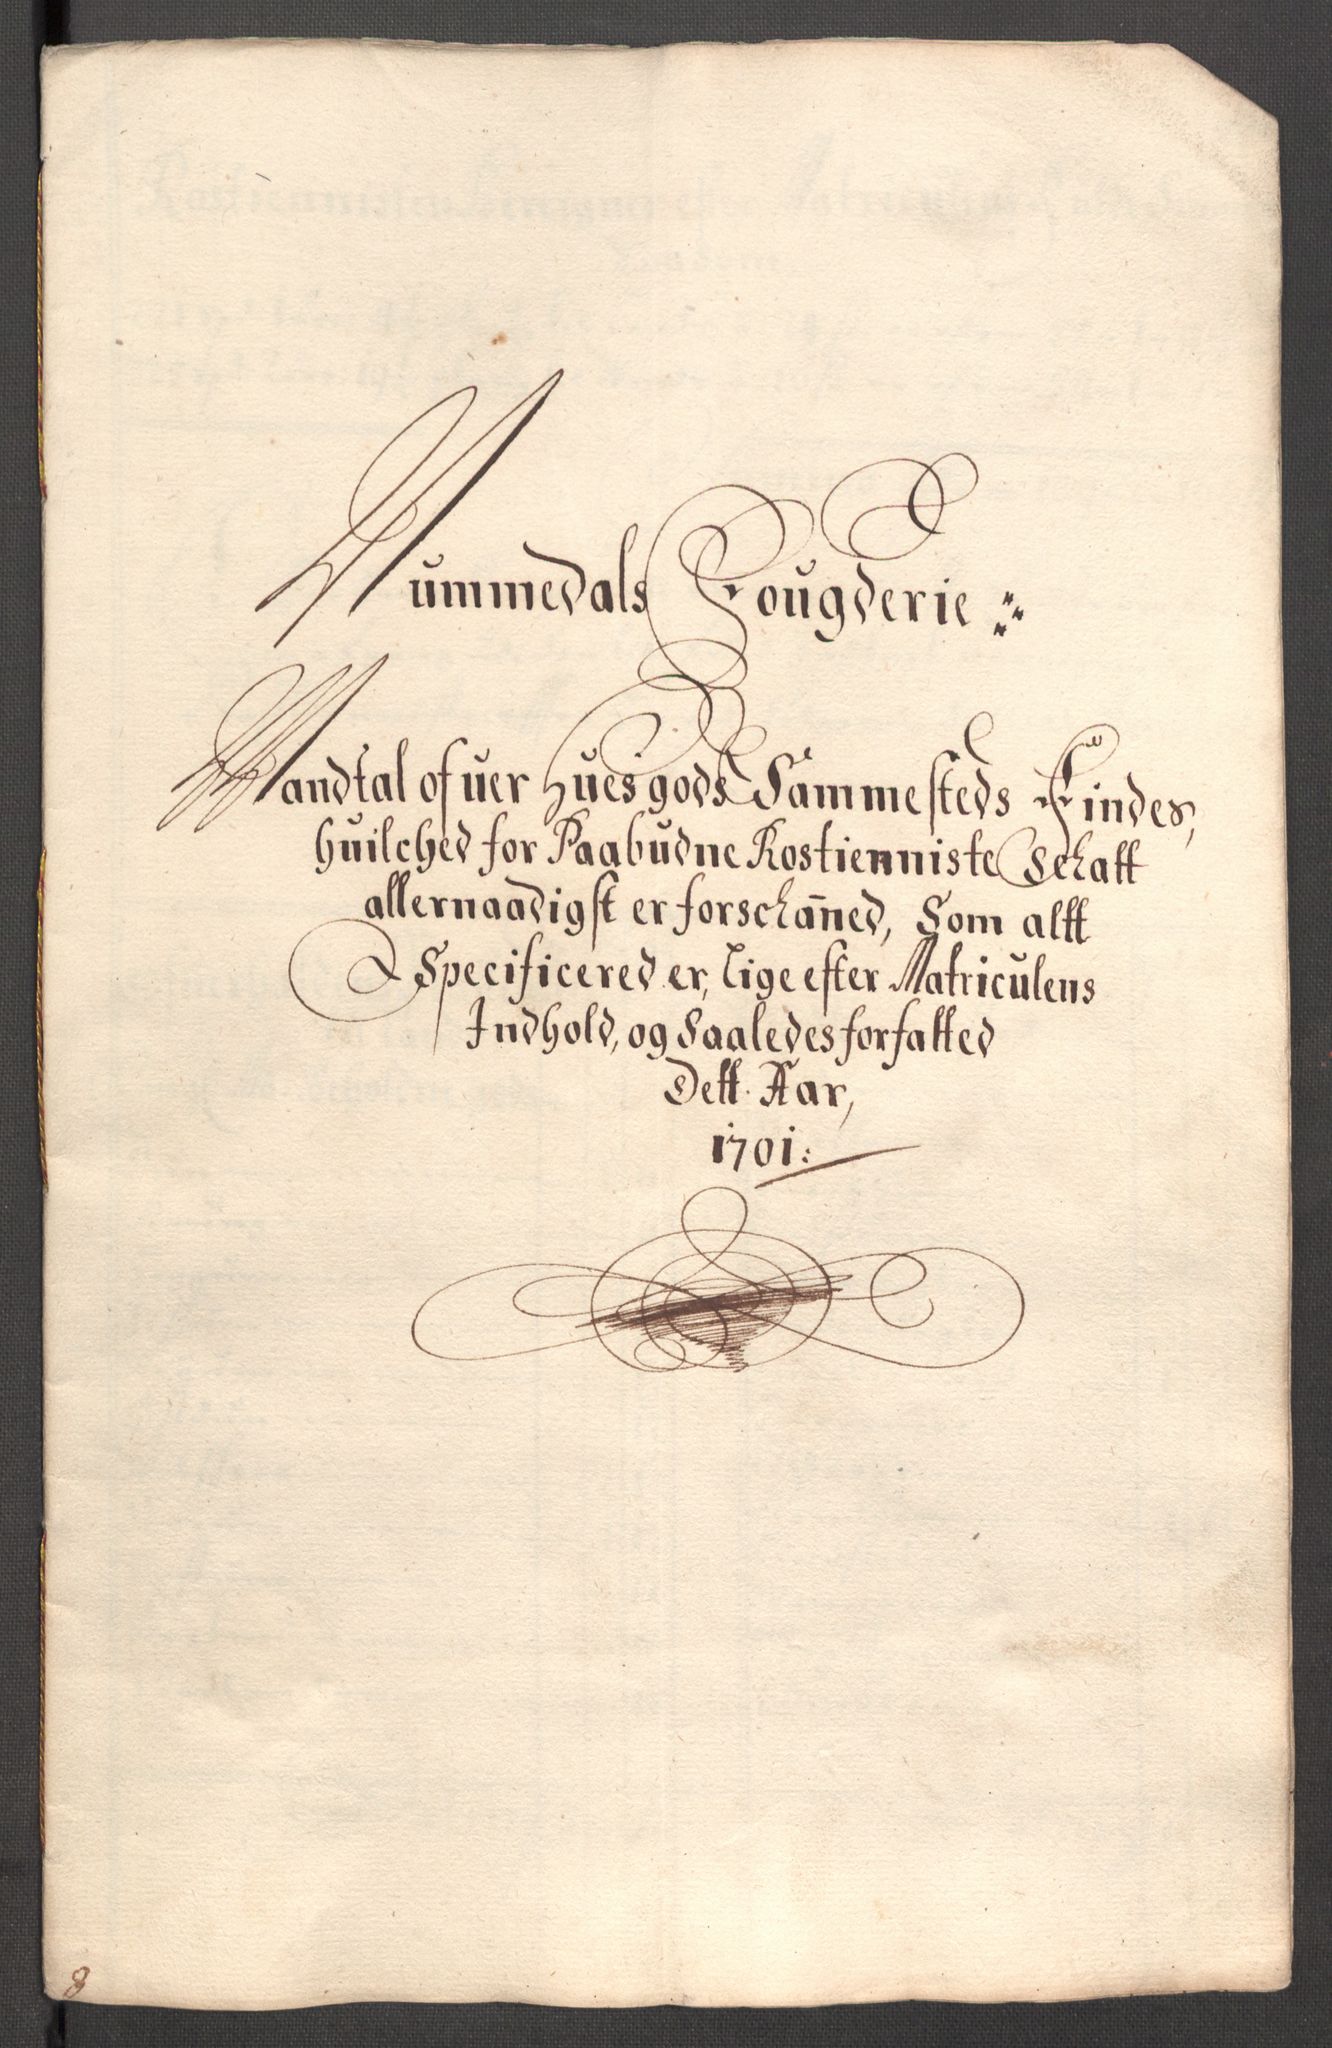 Nummedals Fougderie
Mandtal ofuer Hues gods Sammesteds Findes,
huilched for Paabudne Rostienniste Schatt
allernaadigst er forschaaned, Som altt
Specificered er, lige efter Matriculens
Indhold, og Saaledes forfatted
Dett Aar,
1701:
8